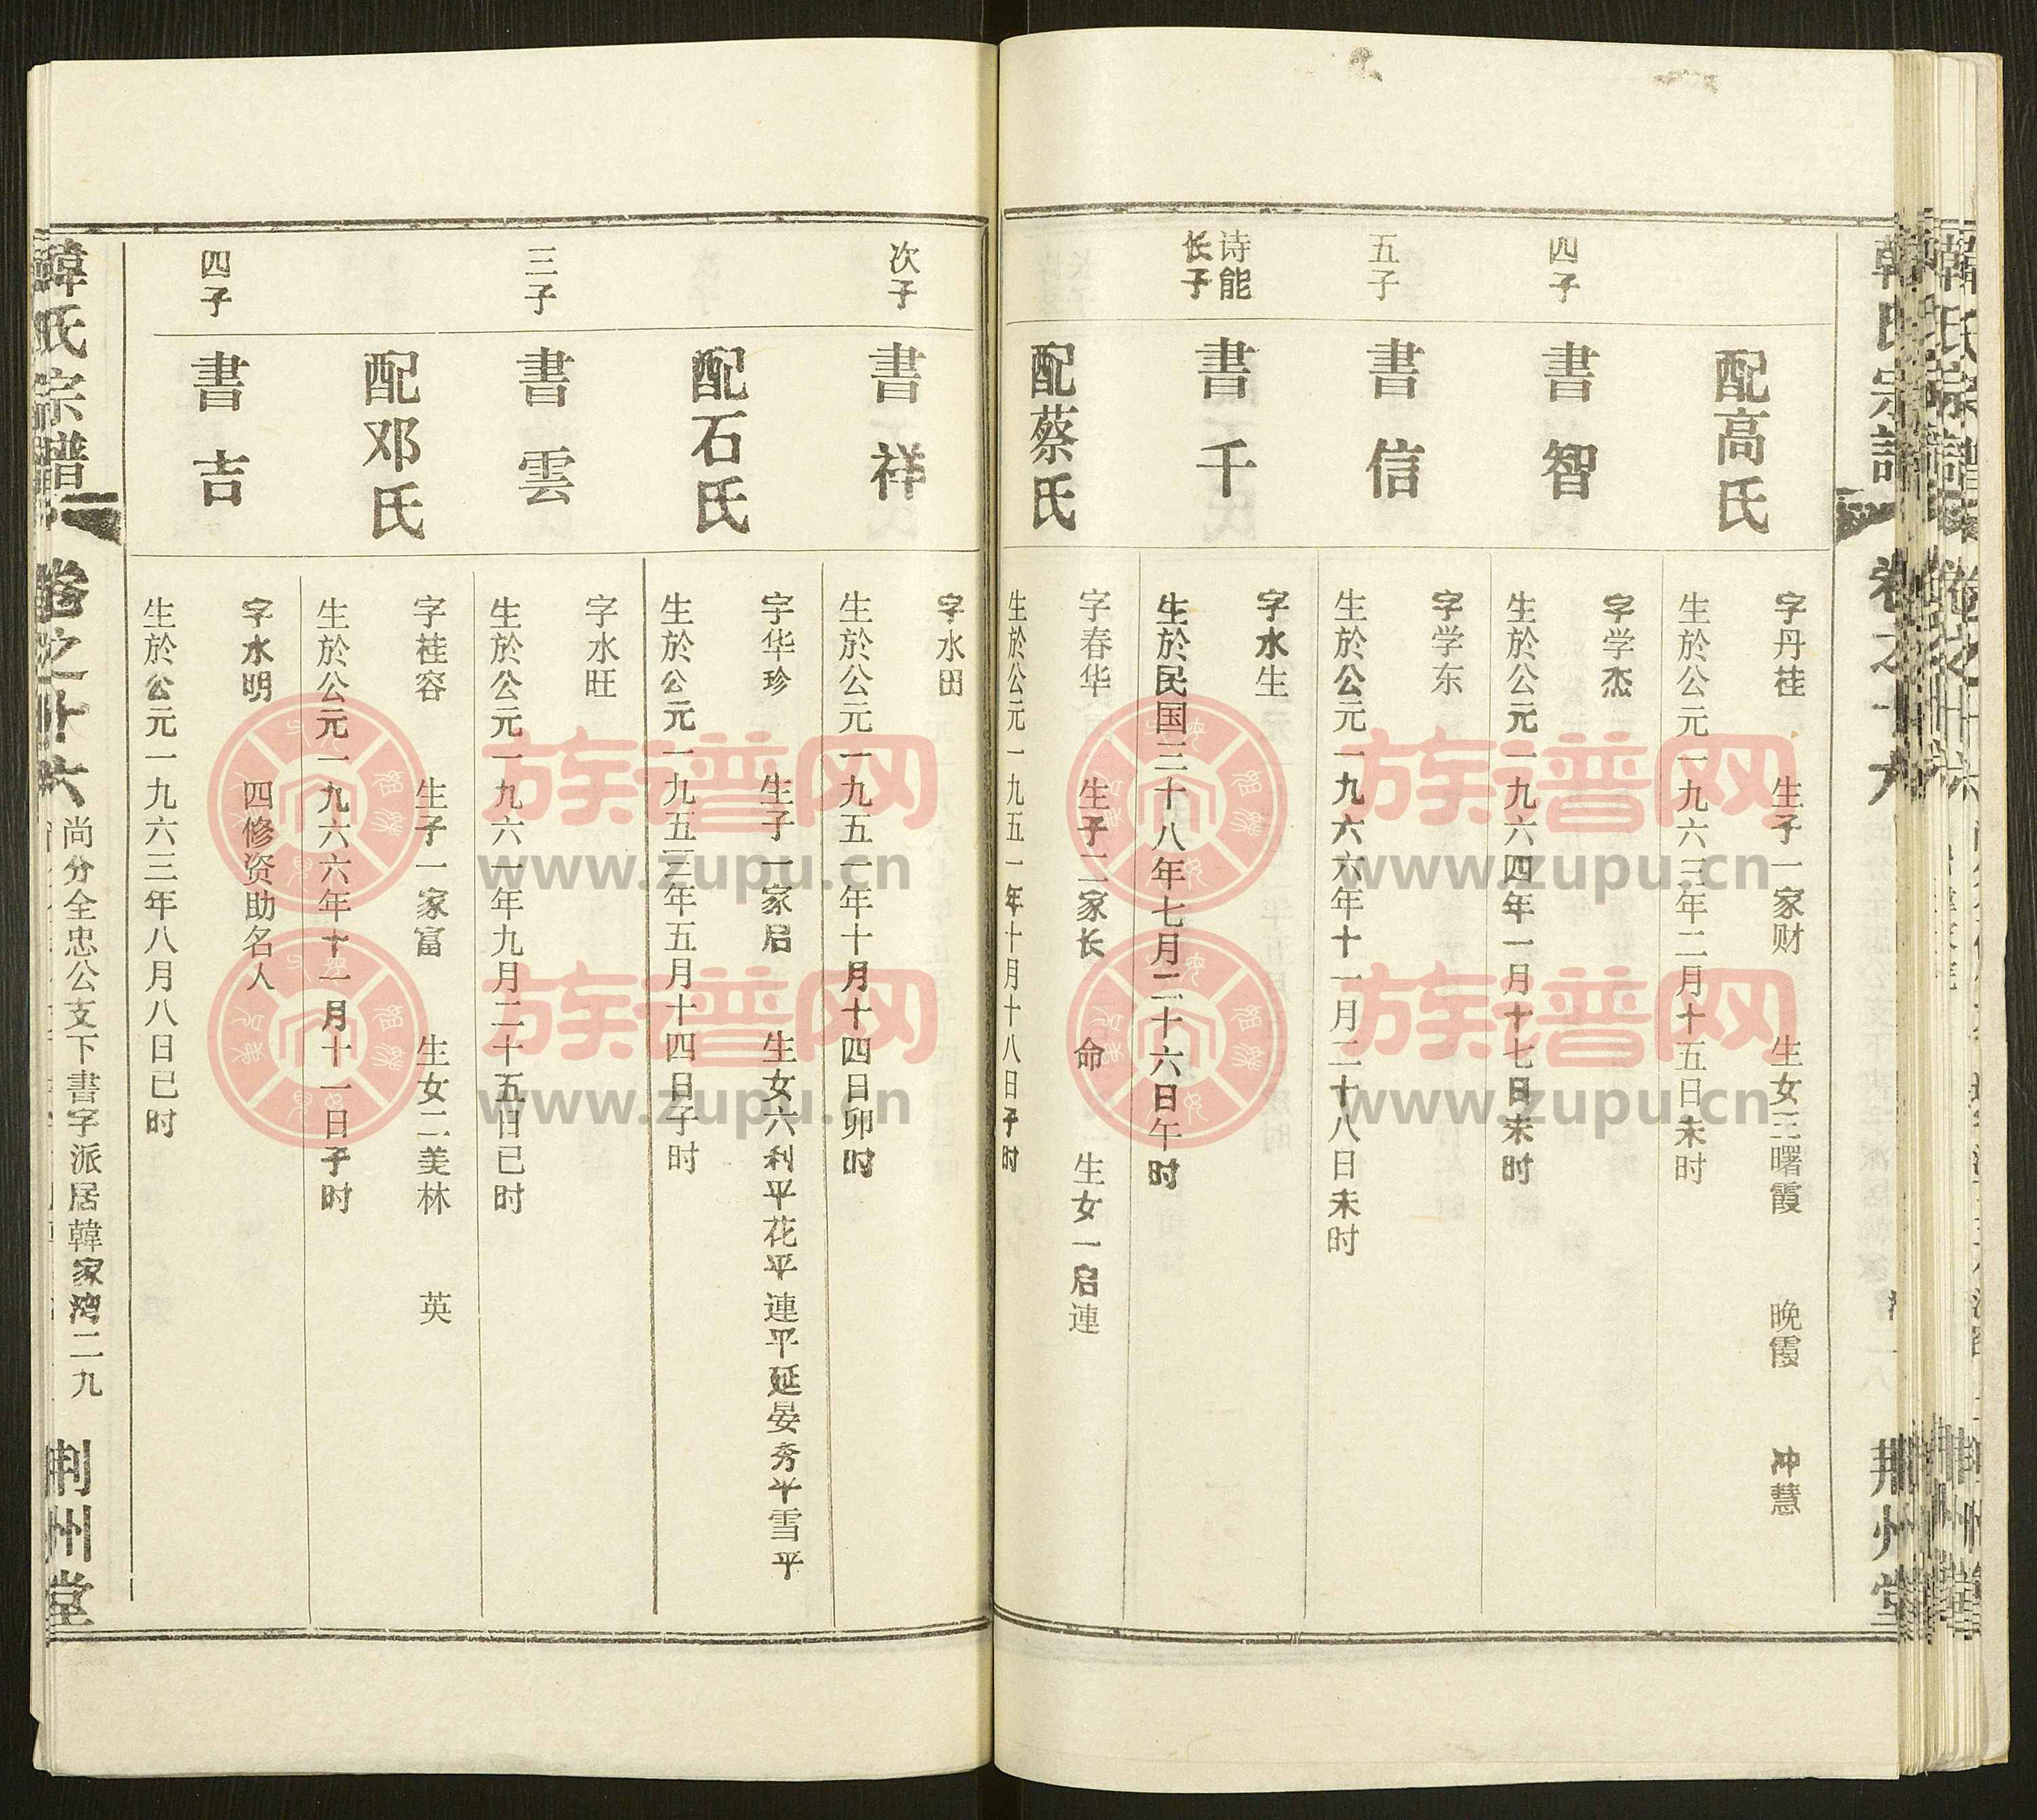 韓氏宗譜
卷之廿六
荆州堂
配高氏
字丹桂 生子一家财 生女三曙霞 晚霞 冲慧
生於公元一九六三年二月十五日未时
四子
書智
字学杰
生於公元一九六四年一月十七日未时
五子
書信
字学东
生於公元一九六六年十一月二十八日未时
诗能
长子
書千
字水生
生於民国三十八年七月二十六日午时
配蔡氏
字春华 生子二家长 命 生女一启連
生於公元一九五一年十月十八日子时
次子
書祥
字水田
生於公元一九五一年十月十四日卯时
配石氏
字华珍 生子一家启 生女六利平花平連平延晏秀平雪平
生於公元一九五三年五月十四日子时
三子
書雲
字水旺
生於公元一九六一年九月二十五日已时
配邓氏
字桂容 生子一家富 生女二美林 英
生於公元一九六六年十一月十一日子时
四子
書吉
字水明 四修资助名人
生於公元一九六三年八月八日已时
韓氏宗譜
卷之廿六
尚分全忠公支下書字派居韓家湾二九
荆州堂
族谱网
www.zupu.cn
族谱网
www.zupu.cn
族谱网
www.zupu.cn
族谱网
www.zupu.cn